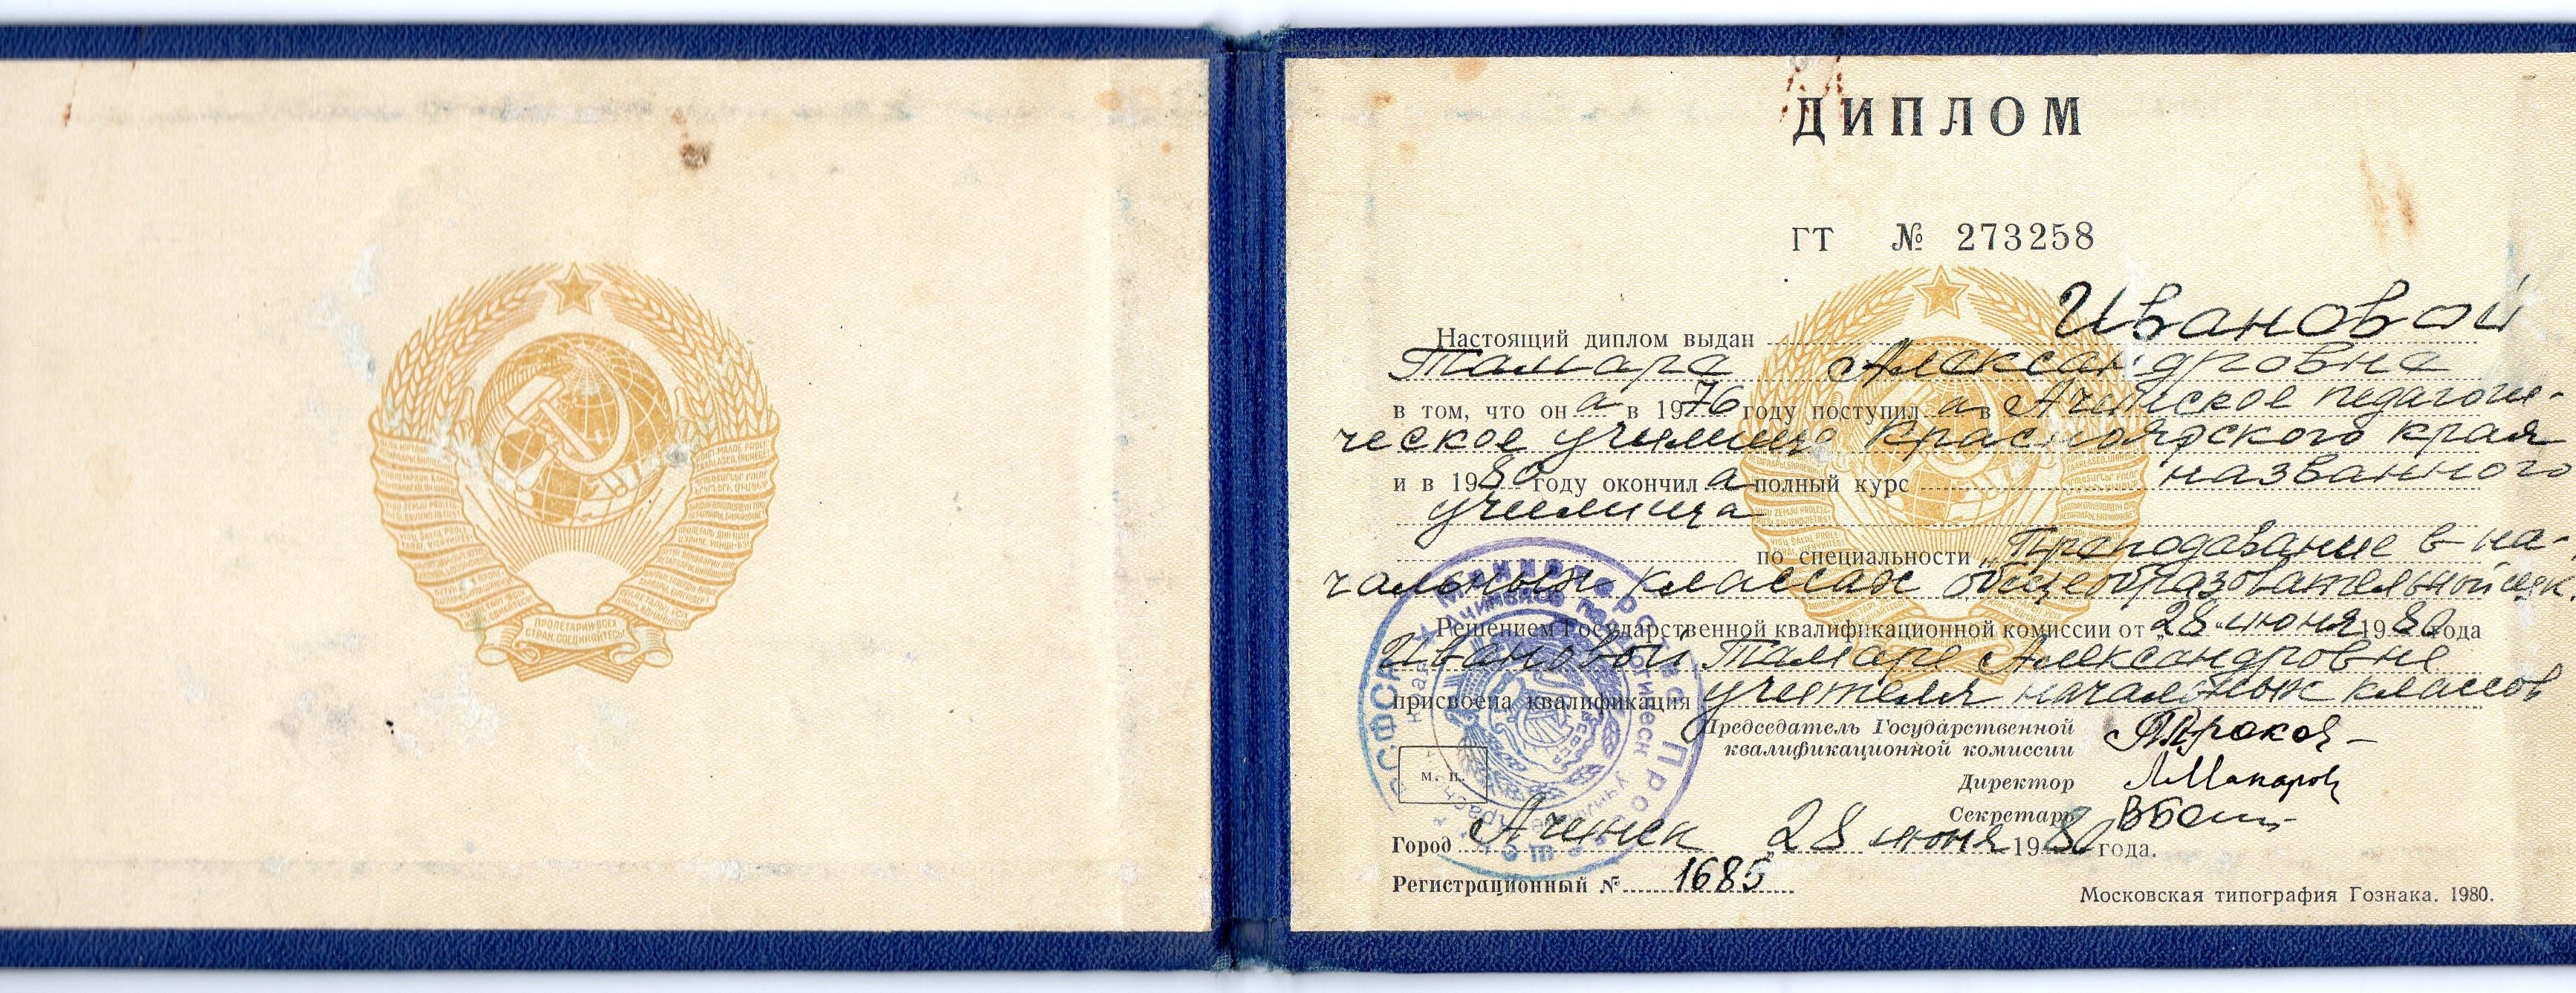 ПРОЛЕТАРИИ ВСЕХ
СТРАН, СОЕДИНЯЙТЕСЬ!
ДИПЛОМ
ГТ № 273258
Настоящий диплом выдан Ивановой
Тамаре Александровне
в том, что он а в 1976 году поступил а в Ачинское педагоги-
ческое училище Красноярского края
и в 1980 году окончил а полный курс названного
училища
по специальности „Преподавание в на-
чальных классах общеобразовательной шк.
Решением Государственной квалификационной комиссии от „28" июня 1980 года
Ивановой Тамаре Александровне
присвоена квалификация учителя начальных классов
Председатель Государственной
квалификационной комиссии
Директор
Секретарь
м. п.
Город Ачинск „28 июня 1980 года.
Регистрационный № 1685
Московская типография Гознака. 1980.